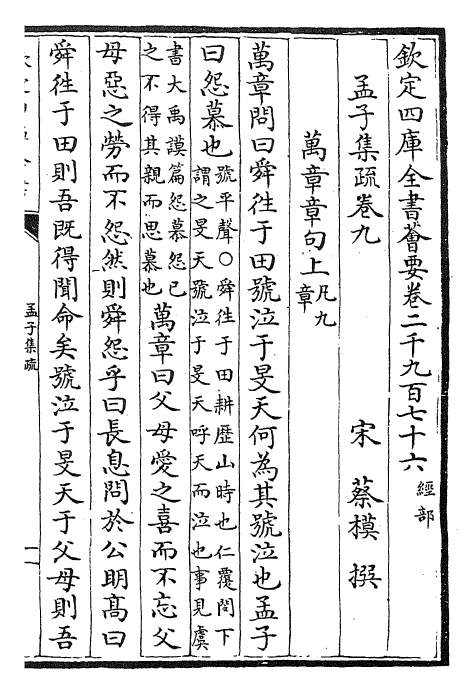 欽定四庫全書薈要卷二千九百七十六 經部
孟子集疏卷九
宋 蔡模 撰
萬章章句上 凡九章
萬章問曰舜往于田號泣于旻天何為其號泣也孟子
曰怨慕也 號平聲○舜往于田耕歴山時也仁覆閔下
謂之旻天號泣于旻天呼天而泣也事見虞
書大禹謨篇怨慕怨已
之不得其親而思慕也 萬章曰父母愛之喜而不忘父
母惡之勞而不怨然則舜怨乎曰長息問於公明髙曰
舜往于田則吾既得聞命矣號泣于旻天于父母則吾
孟子集疏
一